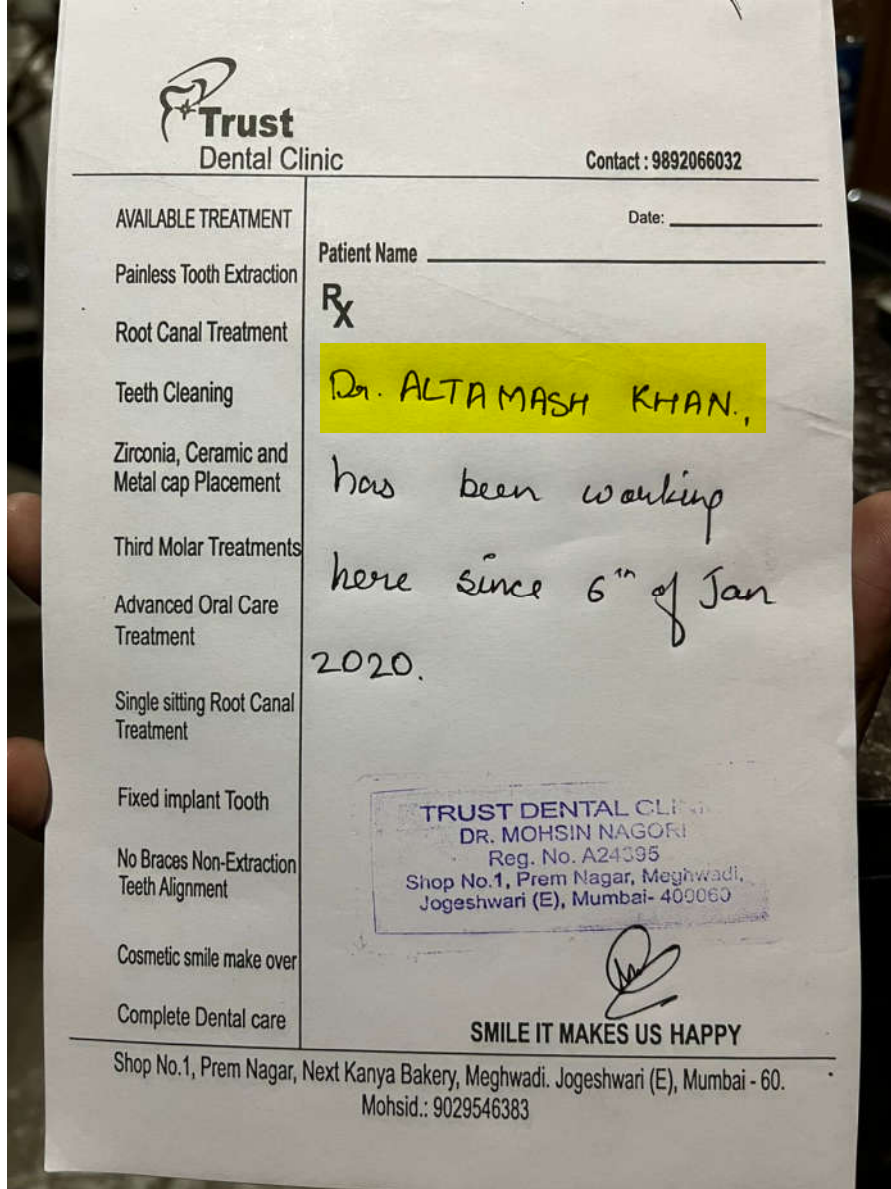 Trust
Dental Clinic
Contact : 9892066032
AVAILABLE TREATMENT
Painless Tooth Extraction
Root Canal Treatment
Teeth Cleaning
Zirconia, Ceramic and
Metal cap Placement
Third Molar Treatments
Advanced Oral Care
Treatment
Single sitting Root Canal
Treatment
Fixed implant Tooth
No Braces Non-Extraction
Teeth Alignment
Cosmetic smile make over
Complete Dental care
Date:
Patient Name
Rx
Dr. ALTAMASH KHAN.,
has been working
here since 6th of Jan
2020.
TRUST DENTAL
DR. MOHSIN NAGORI
Reg. No.
Shop No.1, Prem Nagar, Meghwadi,
Jogeshwari (E), Mumbai- 400060
SMILE IT MAKES US HAPPY
Shop No.1, Prem Nagar, Next Kanya Bakery, Meghwadi. Jogeshwari (E), Mumbai - 60.
Mohsid.: 9029546383